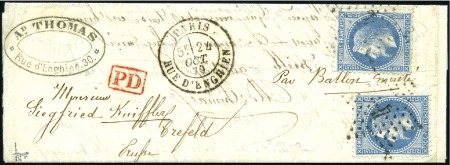 AD THOMAS
Rue d'Enghien, 30.
PARIS
24
OCT.
RUE D'ENGHIEN
PD
Par Ballon Monté
Monsieur
Siegfried
Crefeld
Prusse